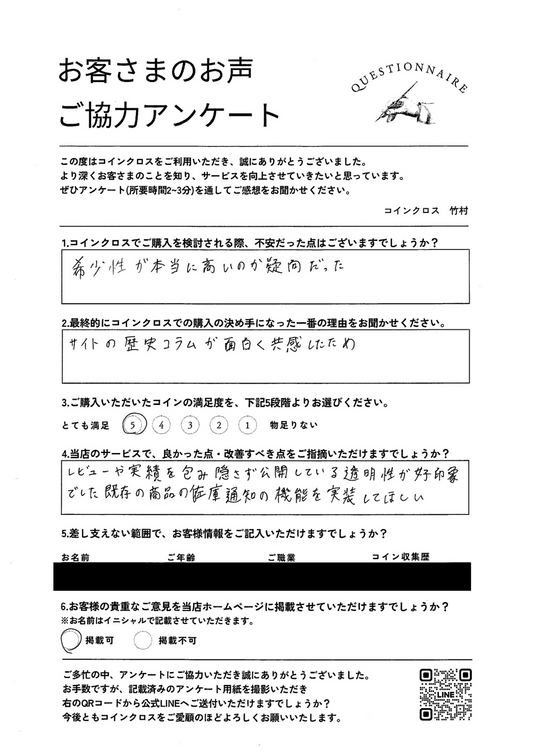 お客さまのお声
ご協力アンケート
QUESTIONNAIRE
この度はコインクロスをご利用いただき、誠にありがとうございました。
より深くお客さまのことを知り、サービスを向上させていきたいと思っています。
ぜひアンケート(所要時間2~3分)を通してご感想をお聞かせください。
コインクロス 竹村
1.コインクロスでご購入を検討される際、不安だった点はございますでしょうか?
希少性が本当に高いのか疑問だった
2.最終的にコインクロスでの購入の決め手になった一番の理由をお聞かせください。
サイトの歴史コラムが面白く共感したため
3.ご購入いただいたコインの満足度を、下記5段階よりお選びください。
とても満足 5 4 3 2 1 物足りない
4.当店のサービスで、良かった点・改善すべき点をご指摘いただけますでしょうか?
レビューや実績を包み隠さず公開している透明性が好印象
でした 既存の商品の在庫通知の機能を実装してほしい
5.差し支えない範囲で、お客様情報をご記入いただけますでしょうか?
お名前 ご年齢 ご職業 コイン収集歴
6.お客様の貴重なご意見を当店ホームページに掲載させていただけますでしょうか?
※お名前はイニシャルで記載させていただきます。
掲載可 掲載不可
ご多忙の中、アンケートにご協力いただき誠にありがとうございました。
お手数ですが、記載済みのアンケート用紙を撮影いただき
右のQRコードから公式LINEへご送付いただけますでしょうか?
今後ともコインクロスをご愛顧のほどよろしくお願いいたします。
LINE